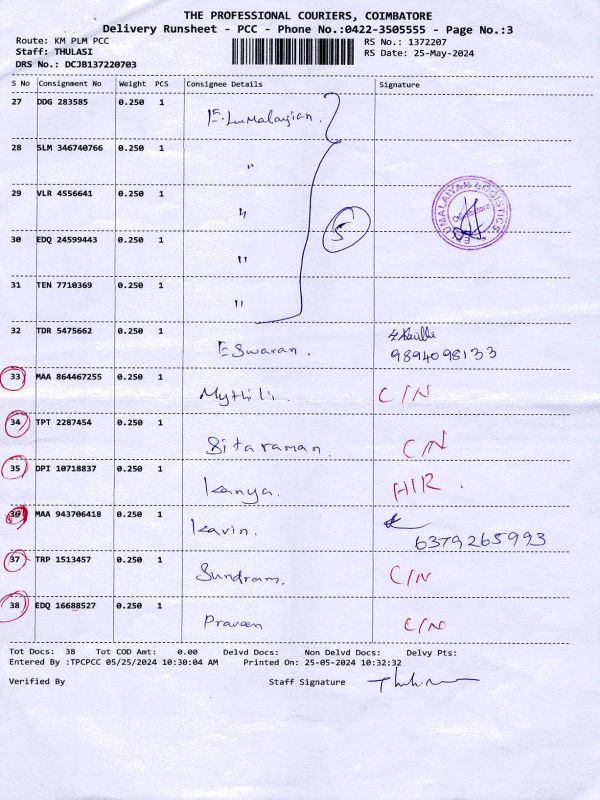 THE PROFESSIONAL COURIERS, COIMBATORE
Delivery Runsheet - PCC - Phone No.:0422-3505555 - Page No.:3
Route: KM PLM PCC RS No.: 1372207
Staff: THULASI RS Date: 25-May-2024
DRS No.: DCJB137220703
S No Consignment No Weight PCS Consignee Details Signature
27 DDG 283585 0.250 1 E.Lumalayian.
28 SLM 346740766 0.250 1 "
29 VLR 4556641 0.250 1 "
30 EDQ 24599443 0.250 1 "
31 TEN 7710369 0.250 1 "
5
ELUMALAIYAN LOGISTICS
Coimbatore
32 TDR 5475662 0.250 1 Eswaran. 9894098133
33 MAA 864467255 0.250 1 Mythili. C/N
34 TPT 2287454 0.250 1 Sitaraman. C/N
35 DPI 10718837 0.250 1 Kanya. HIR.
36 MAA 943706418 0.250 1 Kavin. 6379265993
37 TRP 1513457 0.250 1 Sundram. C/N
38 EDQ 16688527 0.250 1 Praveen C/N
Tot Docs: 38 Tot COD Amt: 0.00 Delvd Docs: Non Delvd Docs: Delvy Pts:
Entered By :TPCPCC 05/25/2024 10:30:04 AM Printed On: 25-05-2024 10:32:32
Verified By Staff Signature